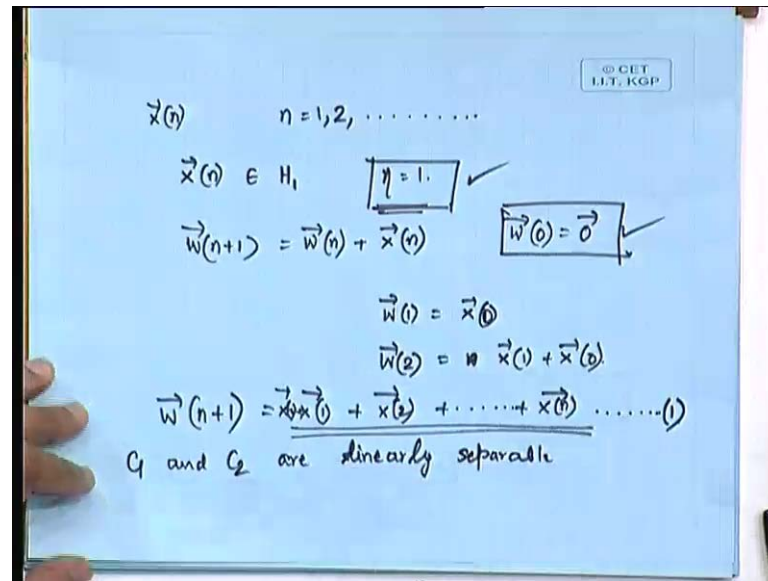 © CET
I.I.T. KGP
x⃗(n) n = 1, 2, ..........
x⃗(n) ∈ H₁ η = 1. ✓
w⃗(n+1) = w⃗(n) + x⃗(n) w⃗(0) = 0⃗ ✓
w⃗(1) = x⃗(0)
w⃗(2) = x⃗(1) + x⃗(0).
w⃗(n+1) = x⃗(1) + x⃗(2) + ...... + x⃗(n) .......(1)
C₁ and C₂ are linearly separable